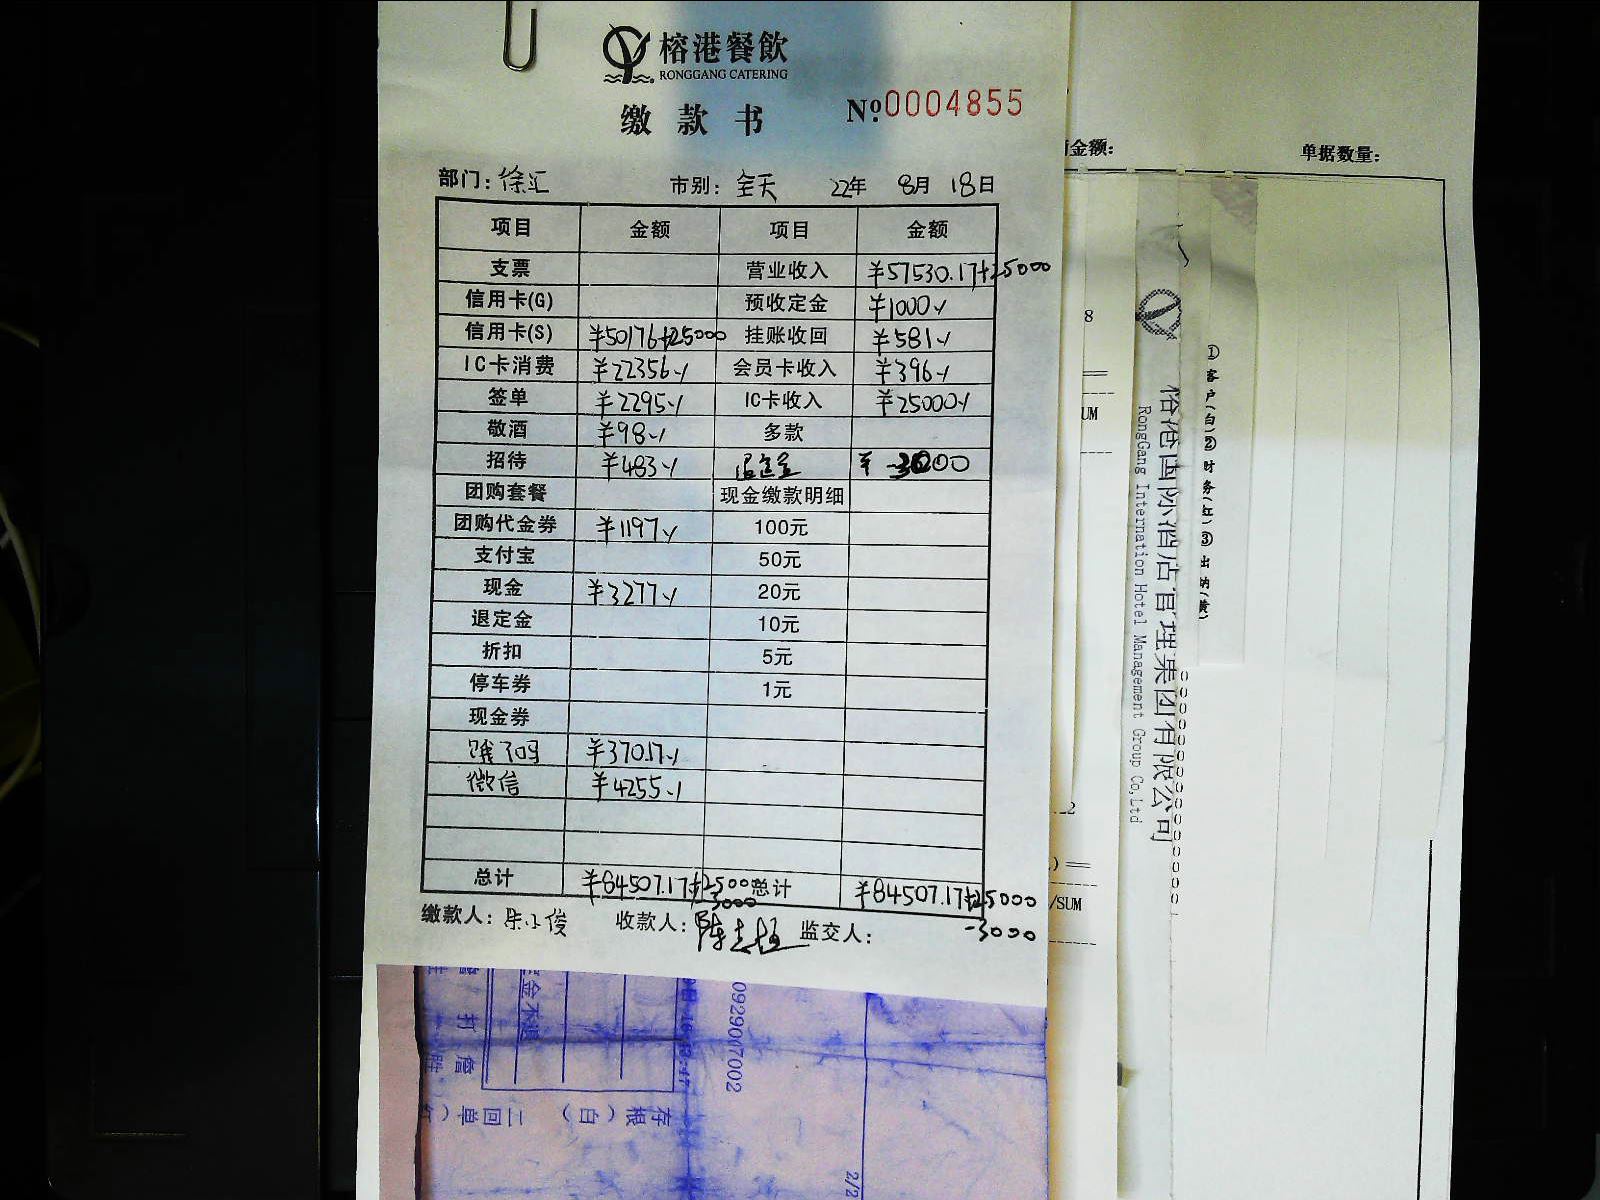 榕港餐飲
RONGGANG CATERING
缴款书 №0004855
部门:徐汇 市别:全天 22年 8月 18日
项目 金额 项目 金额
支票 营业收入 ¥57530.17+25000
信用卡(G) 预收定金 ¥1000
信用卡(S) ¥50176+25000 挂账收回 ¥581
IC卡消费 ¥22356 会员卡收入 ¥396
签单 ¥2295 IC卡收入 ¥25000
敬酒 ¥98 多款
招待 ¥483 退定金 ¥ -3000
团购套餐 现金缴款明细
团购代金券 ¥1197 100元
支付宝 50元
现金 ¥3277 20元
退定金 10元
折扣 5元
停车券 1元
现金券
饿了吗 ¥370.17
微信 ¥4255
总计 ¥84507.17+2500 总计 ¥84507.17+25000
-3000 -3000
缴款人: 小俊 收款人: 监交人:
金额:
单据数量:
8
UM
2
/SUM
榕港国际酒店管理集团有限公司
RongGang International Hotel Management Group Co,Ltd
①客户(白)②财务(红)③出纳(黄)
金不退
0929007002
存根(白)
二回单(红
2/2